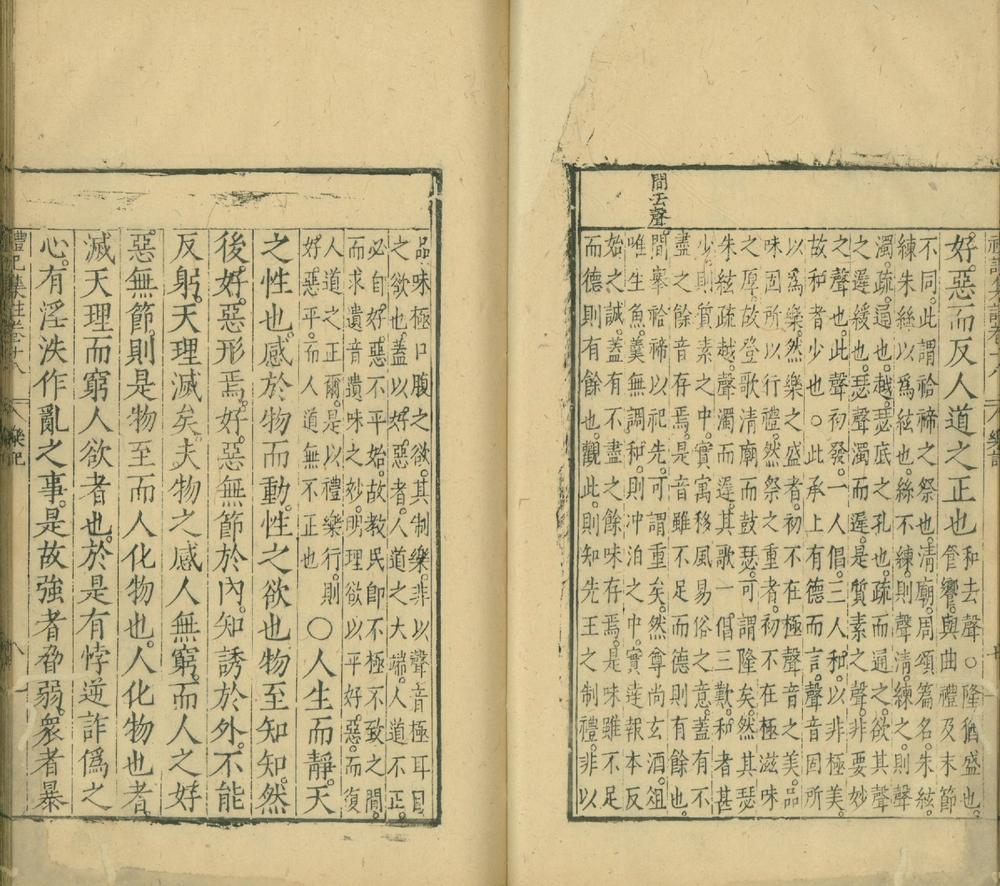 好。惡而反人道之正也
和去聲○隆猶盛也。
饗。與曲禮及末節
不同。此謂祫禘之祭也。清廟。周頌篇名。朱絃。
練朱絲以爲絃也。絲不練。則聲清。練之。則聲
濁。疏。通也。越。瑟底之孔也。疏而通之。欲其聲
之遲緩也。瑟聲濁而遲。是質素之聲。非要妙
之聲也。此聲初發。一人倡。三人和。以非極美。
故和者少也。○此承上有德而言。聲音固所
以爲樂。然樂之盛者。初不在極聲音之美。品
味固所以行禮。然祭之重者。初不在極滋味
之厚。故登歌清廟而鼓瑟。可謂隆矣。然其瑟
朱絃疏越。聲濁而遲。其歌一倡三歎。和者甚
少。則質素之中。實寓移風易俗之意。蓋有不
盡之餘音存焉。是音雖不足而德則有餘也。
間去聲。
間搴祫禘以祀先。可謂重矣。然尊尚玄酒。俎
唯生魚。羹無調和。則冲泊之中。實達報本反
始之誠。蓋有不盡之餘味存焉。是味雖不足
而德則有餘也。觀此。則知先王之制禮。非以
品味極口腹之欲。其制樂。非以聲音極耳目
之欲也。蓋以好。惡者。人道之大端。人道不正。
必自好。惡不平始。故教民即不極不致之間。
而求遺音遺味之妙。明理欲以平好惡。而復
人道之正爾。是以禮樂行。則
好。惡平。而人道無不正也
○人生而靜。天
之性也。感於物而動。性之欲也。物至知知。然
後好。惡形焉。好。惡無節於內。知誘於外。不能
反躬。天理滅矣。夫物之感人無窮。而人之好
惡無節。則是物至而人化物也。人化物也者。
滅天理而窮人欲者也。於是有悖逆詐僞之
心。有淫泆作亂之事。是故強者脅弱。衆者暴
禮記集註卷十八 樂記